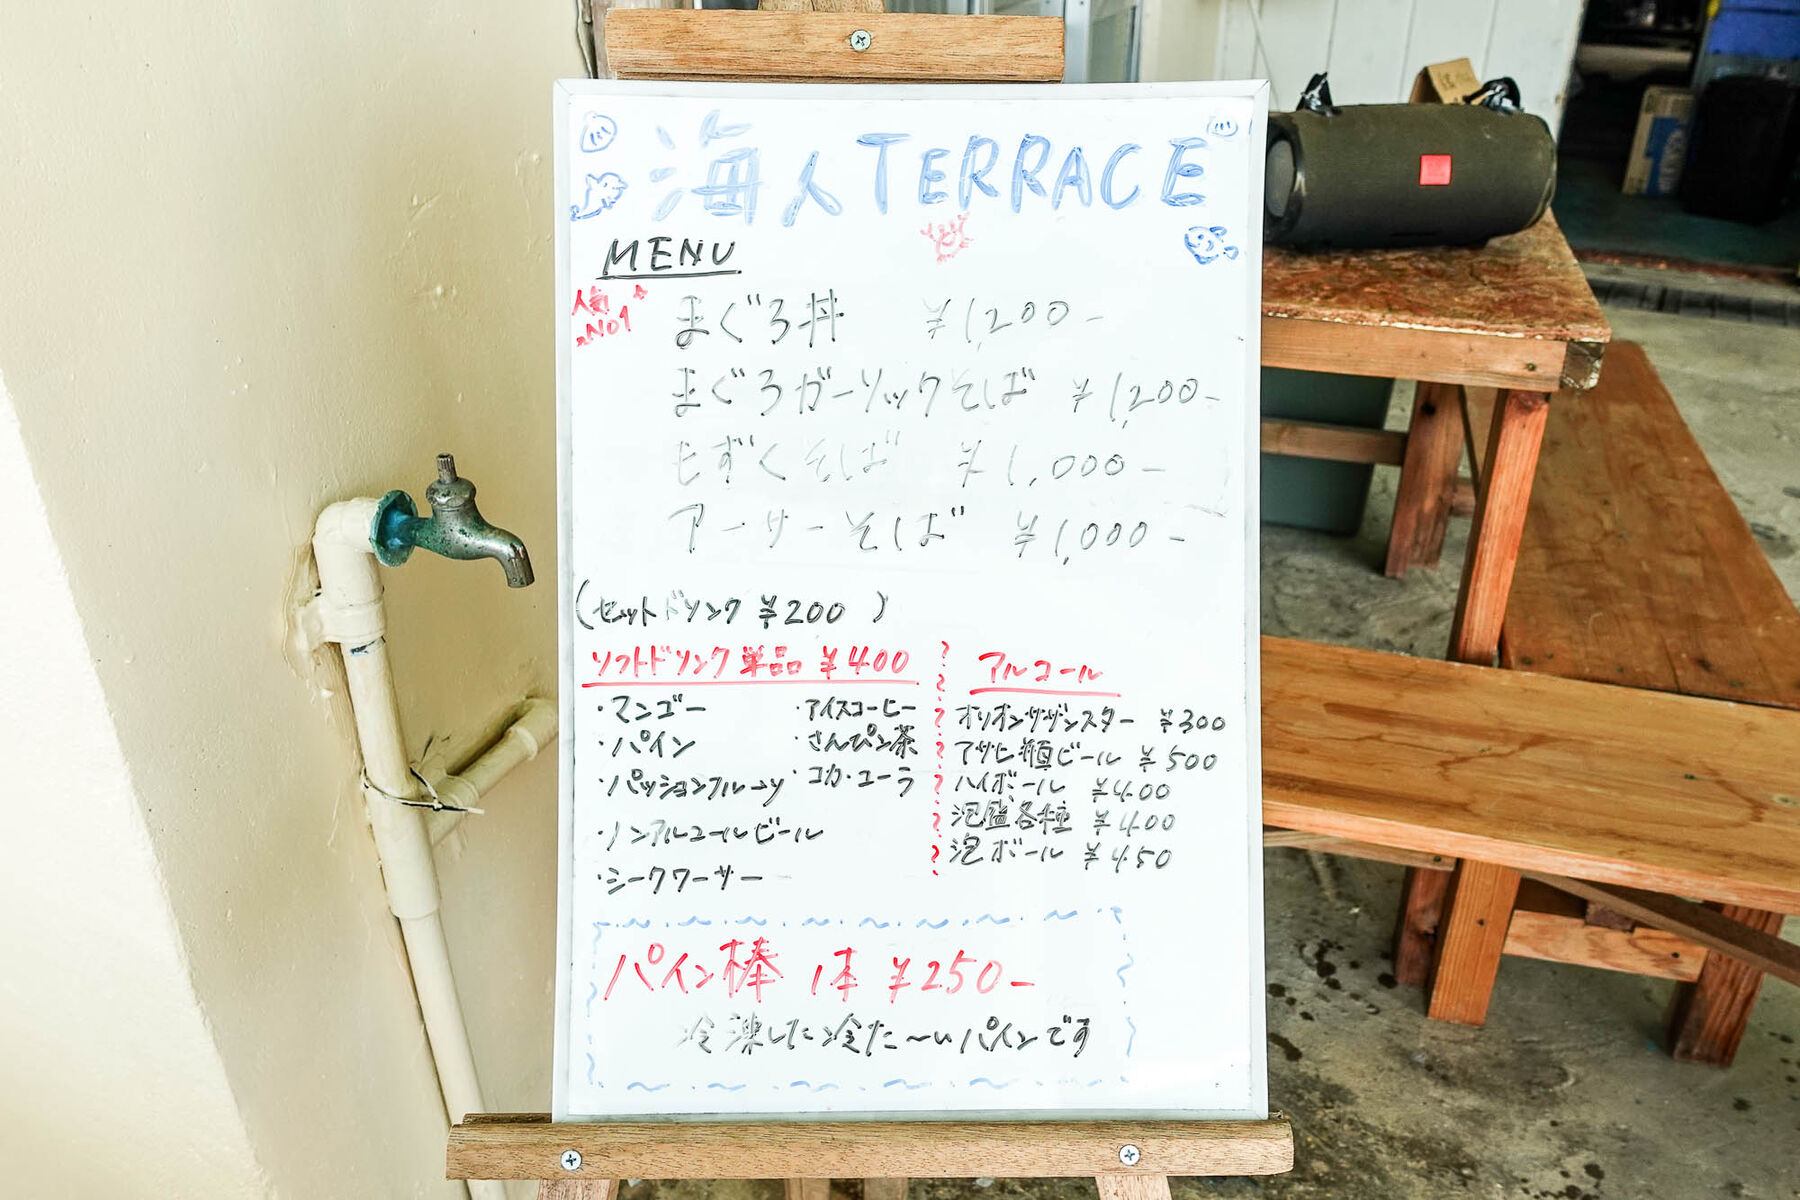 海人 TERRACE
MENU
人気
No1
まぐろ丼 ¥1,200-
まぐろガーリックそば ¥1,200-
もずくそば ¥1,000-
アーサーそば ¥1,000-
(セットドリンク ¥200 )
ソフトドリンク 単品 ¥400
・マンゴー
・パイン
・パッションフルーツ
・ノンアルコールビール
・シークワーサー
・アイスコーヒー
・さんぴん茶
・コカ・コーラ
アルコール
オリオンサザンスター ¥300
アサヒ瓶ビール ¥500
ハイボール ¥400
泡盛各種 ¥400
泡ボール ¥450
パイン棒 1本 ¥250-
冷凍した冷た〜いパインです